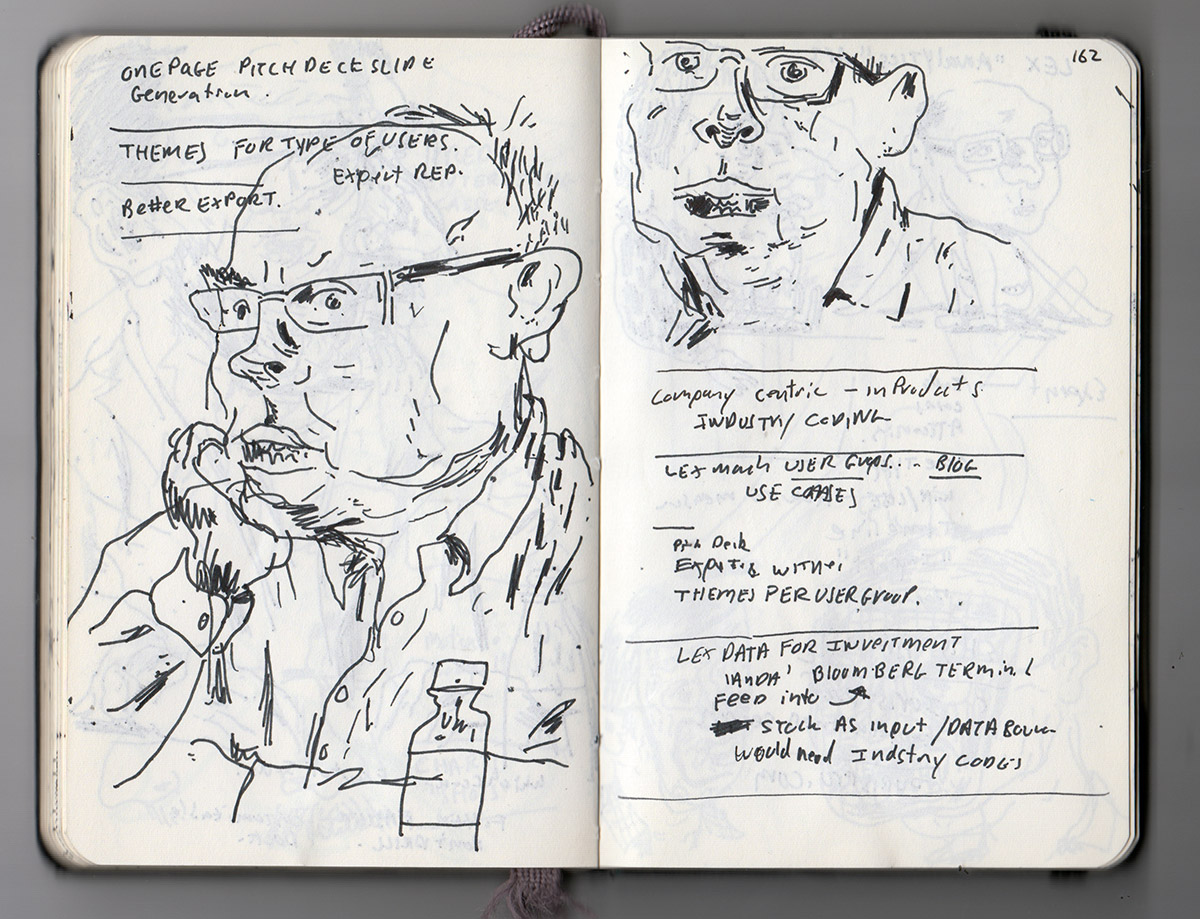 ONE PAGE PITCH DECK SLIDE
Generation.
THEMES FOR TYPE OF USERS.
Export REP.
Better EXPORT.
162
Company centric – in Products
INDUSTRY CODING
LEX mach USER Grups.. - BLOG
USE CASES
Deck
THEMES PER USER GROUP.
LEX DATA FOR INVESTMENT
BLOOMBERG TERMINAL
FEED into
STOCK AS input /DATA
would need Industry CODES